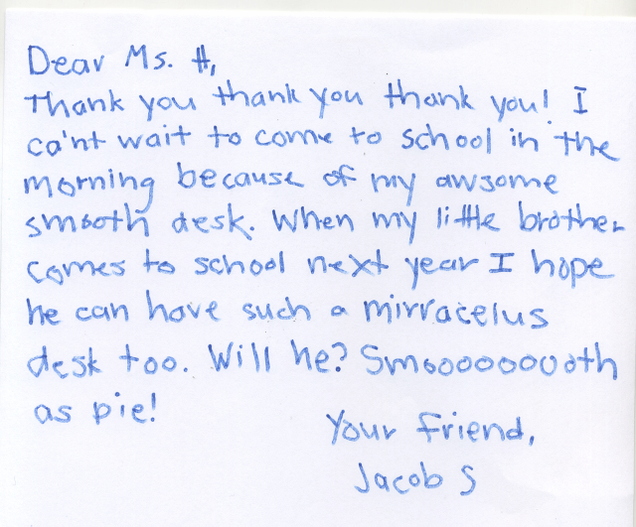 Dear Ms. H,
Thank you thank you thank you! I
ca'nt wait to come to school in the
morning because of my awsome
smooth desk. When my little brother
comes to school next year I hope
he can have such a mirracelus
desk too. Will he? Smooooooooth
as pie!
Your friend,
Jacob S